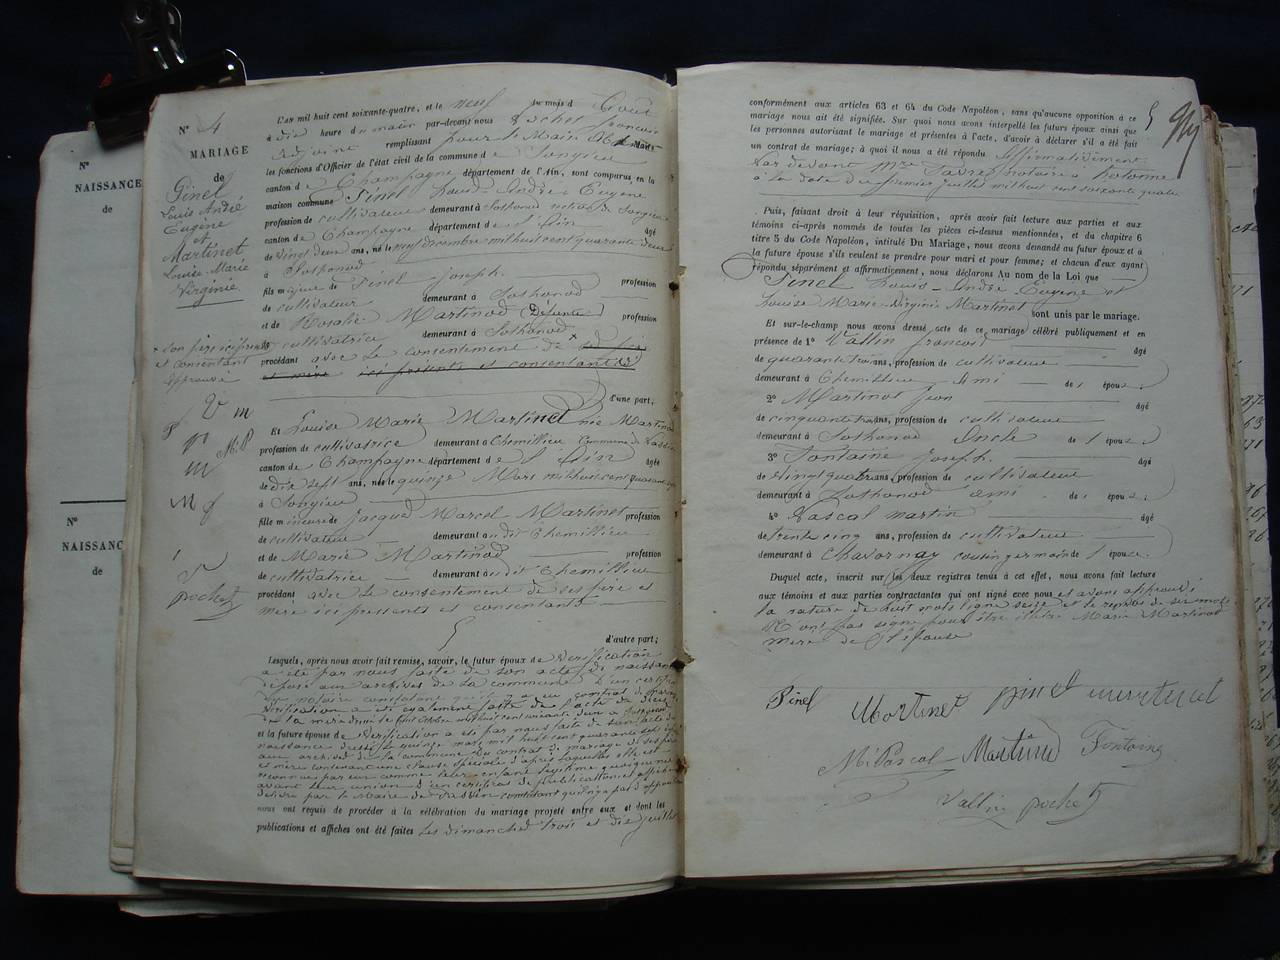 N° 4
MARIAGE
de
Pinel
Louis André
Eugène
et
Martinet
Louise Marie
Virginie
× son père ici présent
et consentant
approuvé
pochet
N°
NAISSANCE
de
N°
NAISSANCE
de
L'an mil huit cent soixante-quatre, et le neuf du mois d'Août
à dix heure du matin par-devant nous Pochet françois
Adjoint remplissant pour le Maire
les fonctions d'Officier de l'état civil de la commune de Songieu
canton de Champagne département de l'Ain, sont comparus, en la
maison commune Pinel Louis André Eugène
profession de cultivateur demeurant à Sothonod section de Songieu
canton de Champagne département de l'Ain âgé
de vingt deux ans, né le neuf décembre mil huit cent quarante deux
à Sothonod
fils majeur de Pinel Joseph profession
de cultivateur demeurant à Sothonod
et de Rosalie Martinod (Défunte) profession
de cultivatrice demeurant à Sothonod
procédant avec le consentement de × ses père
et mère ici présents et consentants
d'une part,
Et Louise Marie Martinet née Martinod
profession de cultivatrice demeurant à Chemillieu Commune de Passin
canton de Champagne département de l'Ain âgée
de dix sept ans, née le quinze Mars mil huit cent quarante
à Songieu
fille mineure de Jacques Marcel Martinet profession
de cultivateur demeurant audit Chemillieu
et de Marie Martinod profession
de cultivatrice demeurant audit Chemillieu
procédant avec le consentement de ses père et
mère ici présents et consentants
d'autre part;
Lesquels, après nous avoir fait remise, savoir, le futur époux de Vérification
a été par nous faite de son acte de naissance
déposé aux archives de la commune D'un certificat
du notaire constatant qu'il y a eu contrat de mariage
Vérification a été également faite de l'acte de décès
de sa mère
et la future épouse de Vérification a été par nous faite de son acte de
naissance dressé le quinze mars mil huit cent quarante
aux archives de la commune Du contrat de mariage de ses père
et mère contenant une clause spéciale d'après laquelle elle est
reconnue par eux comme leur enfant légitime quoique née
avant leur union D'un certificat de publication et affiche
délivré par le Maire de Passin constatant qu'il n'y a pas d'opposition
nous ont requis de procéder à la célébration du mariage projeté entre eux et dont les
publications et affiches ont été faites les dimanches trois et dix juillet
conformément aux articles 63 et 64 du Code Napoléon, sans qu'aucune opposition à ce
mariage nous ait été signifiée. Sur quoi nous avons interpellé les futurs époux ainsi que
les personnes autorisant le mariage et présentes à l'acte, d'avoir à déclarer s'il a été fait
un contrat de mariage; à quoi il nous a été répondu affirmativement
par devant Mre Favre notaire à hotonne
à la date du premier juillet mil huit cent soixante quatre
Puis, faisant droit à leur réquisition, après avoir fait lecture aux parties et aux
témoins ci-après nommés de toutes les pièces ci-dessus mentionnées, et du chapitre 6
titre 5 du Code Napoléon, intitulé Du Mariage, nous avons demandé au futur époux et à
la future épouse s'ils veulent se prendre pour mari et pour femme; et chacun d'eux ayant
répondu séparément et affirmativement, nous déclarons Au nom de la Loi que
Pinel Louis André Eugène et
Louise Marie Virginie Martinet sont unis par le mariage.
Et sur-le-champ nous avons dressé acte de ce mariage célébré publiquement et en
présence de 1° Vallin françois âgé
de quarante trois ans, profession de cultivateur
demeurant à Chemillieu Ami de l'époux
2° Martinod Jean âgé
de cinquante trois ans, profession de cultivateur
demeurant à Sothonod Oncle de l'époux
3° Fontaine Joseph âgé
de vingt quatre ans, profession de cultivateur
demeurant à Sothonod ami de l'époux
4° Pascal Martin âgé
de trente cinq ans, profession de cultivateur
demeurant à Chavornay cousin germain de l'épouse
Duquel acte, inscrit sur les deux registres tenus à cet effet, nous avons fait lecture
aux témoins et aux parties contractantes qui ont signé avec nous et avons approuvé
la rature de huit mots ligne seize et le renvoi de six mots
N'ont pas signé pour être illétré Marie Martinod
mère de l'épouse
Pinel Martinet pinel martinet
M. Pascal Martinod Fontaine
Vallin pochet